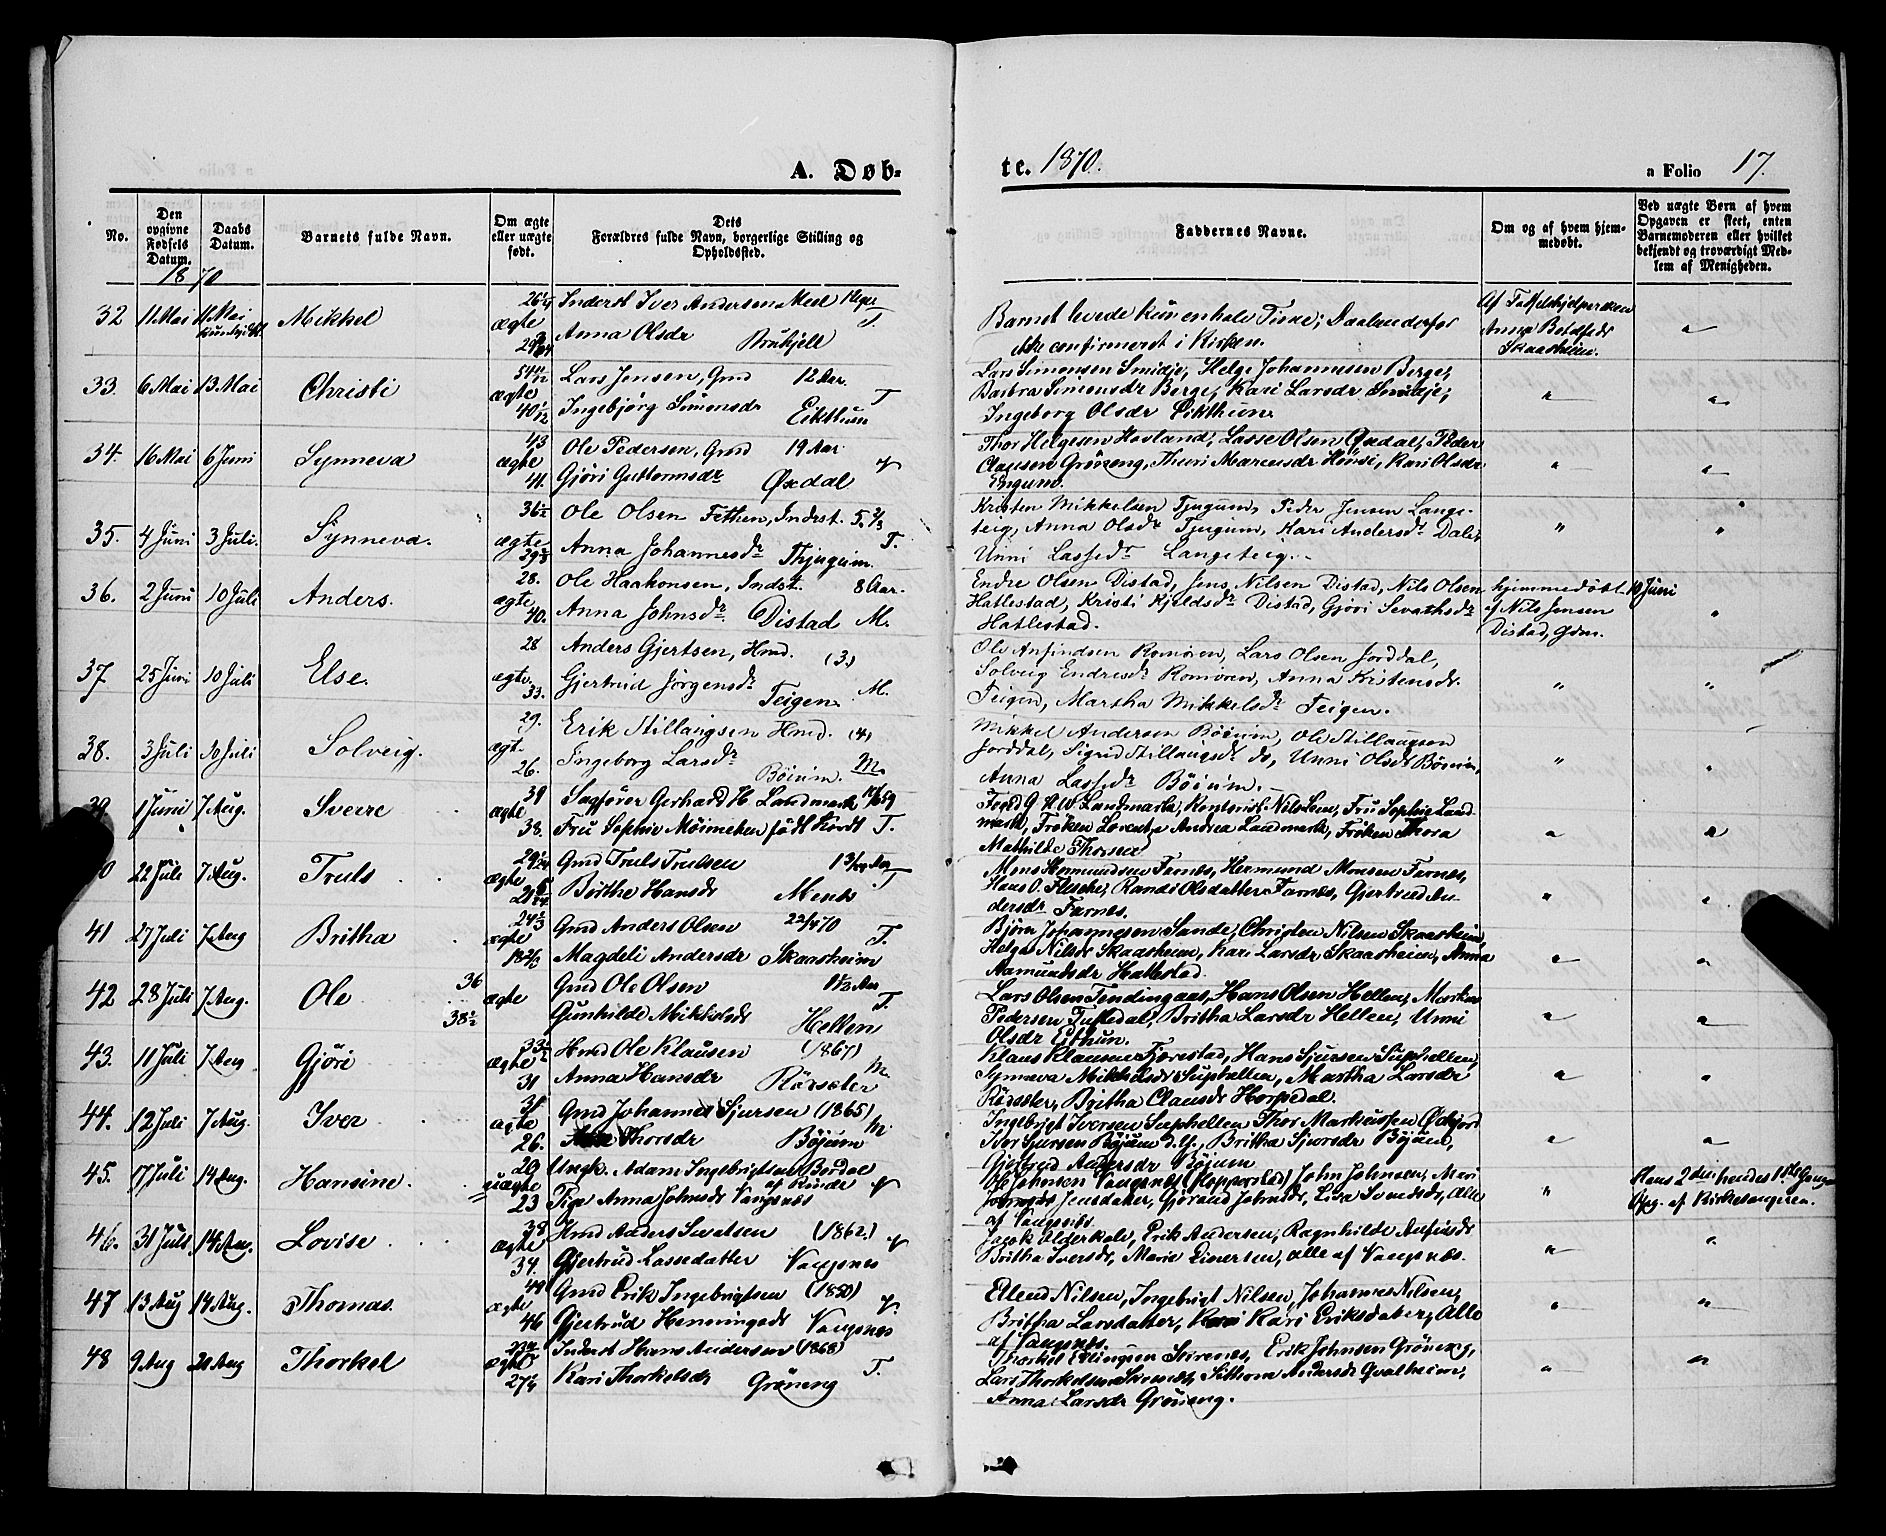 A. Døb-
te. 1870.
a Folio 17.
No.
Den opgivne Fødsels Datum.
Daabs Datum.
Barnets fulde Navn.
Om ægte eller uægte født.
Dets Forældres fulde Navn, borgerlige Stilling og Opholdssted.
Faddernes Navne.
Om og af hvem hjemmedøbt.
Ved uægte Børn af hvem Opgaven er skeet, enten Barnemoderen eller hvilket bekjendt og troværdigt Medlem af Menigheden.
1870
32 11 Mai 11 Mai Mikkel ægte Inderst Iver Andersen
Anna Olsdr
Barnet levede kun en halv Time; Daaben derfor
ikke confirmeret i Kirken.
Skaasheim.
33. 6 Mai 13 Mai Christi ægte Lars Jensen, Gmd 12 Aar. T
Ingebjørg Simonsdr Eikthun
Lars Simonsen Smidje, Helge Johannesen Berge,
Barbra Simonsdr Berge, Kari Larsdr Smidje,
Ingeborg Olsdr Eikthun
34. 16 Mai 6 Juni Synneva 43 ægte 41. Ole Pedersen, Gmd 19 Aar.
Gjøri Guttormsdr Øxdal
Thor Helgesen Hovland, Lasse Olsen Øxdal, Peder
Clausen Grøneng, Thuri Marcusdr Hønsi, Kari Olsdr
Engum.
35. 4 Juni 3 Juli. Synneva. ægte Ole Olsen Fethen, Inderst. T.
Anna Johannesdr Thjugum.
Kristen Mikkelsen Tjugum, Peder Jensen Lange-
teig, Anna Olsdr Tjugum, Kari Andersdr Dale,
Unni Lassedr Langeteig.
36. 2 Juni 10 Juli Anders. 28. ægte 40. Ole Haakonsen, Indst. 8 Aar.
Anna Johnsdr. Distad M.
Endre Olsen Distad, Jens Nilsen Distad, Nils Olsen
Hatlestad, Kristi Kjeldsdr Distad, Gjøri Sevathsdr
Hatlestad.
hjemmedøbt 10 Juni
af Nils Jensen
Distad, Gdm.
37. 25 Juni 10 Juli Else. 28 ægte. 33. Anders Gjertsen, Hmd. (3.)
Gjertrud Jørgensdr Teigen. M.
Ole Anfindsen Romøren, Lars Olsen Jorddal,
Solveig Endresdr Romøren, Anna Kristensdr
Teigen, Martha Mikkelsdr Teigen.
38. 3 Juli 10 Juli Solveig. 29. ægt. 26. Erik Stillaugsen Hmd. (4)
Ingeborg Larsdr Böium. M.
Mikkel Andersen Böium, Ole Stillaugsen
Jorddal, Sigrid Stillaugsdr do, Unni Olsdr Böium,
Anna Lassedr Böium.
39. 1 Juni 7 Aug. Sverre 39 ægte 38. Sagfører Gerhard H. Landmark
Fru Sophie Møinichen født Kordt T.
Foged G. H. W. Landmark, Kontorist Nils Lem, Fru Sophie Land-
mark, Frøken Lorentze Andrea Landmark, Frøken Thora
Mathilde Thorsen
22 Juli 7 Aug. Truls ægte Gmd Truls Trulsen T
Brithe Hansdr Ments
Mons Hermundsen Farnes, Hermund Monsen Farnes,
Hans O. Flesche, Randi Olsdatter Farnes, Gjertrud An-
dersdr Farnes.
41 27 Juli 7 Aug Britha ægte Gmd Anders Olsen 22/4 70 T.
Magdeli Andersdr Skaasheim
Bjørn Johannesen Sande, Christen Nilsen Skaasheim,
Helga Nilsdr Skaasheim, Kari Larsdr Skaasheim, Anna
Aamundsdr Hatlestad.
42 28 Juli 7 Aug. Ole 36 38½ ægte Gmd Ole Olsen T.
Gunhilde Mikkelsdr Hellen
Lars Olsen Tendingaas, Hans Olsen Hellen, Markus
Pedersen Tuftedal, Britha Larsdr Hellen, Unni
Olsdr Eithun.
43. 11 Juli 7 Aug Gjøri 33½ ægte 31 Hmd Ole Klausen (1867) M.
Anna Hansdr Rørsæter
Klaus Klausen Fjærestad, Hans Sjursen Suphellen,
Synneva Mikkelsdr Suphellen, Martha Larsdr
Rørsæter, Britha Clausdr Horpedal.
44. 12 Juli 7 Aug. Iver ægte 26. Gmd Johannes Sjursen (1865) M.
Thorsdr Böjum
Ingebrigt Iversen Suphellen, Thor Markussen Ødefjord
Iver Sjursen Böjum d.y., Britha Sjursdr Böjum,
Gjertrud Andersdr Böjum
45. 17 Juli 14 Aug. Hansine. 20 uægte 23 Ungk. Adam Ingebrigtsen Berdal
af Rinde
Pige Anna Johnsdr Vangsnes
Ole Johnsen Vangsnes (Hopperstad) John Johnsen, Mari
Jensdatter, Gjøraud Johnsdr, Lisa Svendsdr, Alle
af Vangsnes
Hans 2den, hendes 1ste Gang
Opg. af Kirkesangeren.
46. 31 Juli 14 Aug. Lovise. 38 ægte 34. Hmd Anders Sivertsen (1862.)
Gjertrud Lassedatter Vangsnes
Jacob Alderkale, Erik Andersen, Ragnhilde Anfindr
Britha Iversdr, Marie Einersen, alle af Vangsnes.
47 13 Aug 14 Aug. Thomas. 49 ægte 46 Gmd Erik Ingebrigtsen (1850)
Gjertrud Henningsdr Vangsnes
Ellend Nilsen, Ingebrigt Nilsen, Johannes Nilsen,
Britha Larsdatter, Kari Eriksdatter, Alle
af Vangsnes.
48 9 Aug 20 Aug Thorkel ægte Inderst Hans Andersen (1868) T.
Kari Thorkelsdr Grøneng
Thorkel Ellingsen Stirenes, Erik Johnsen Grøneng,
Lars Thorkelsen, Sitherne Andersdr Qvalheim,
Anna Larsdr Grøneng.